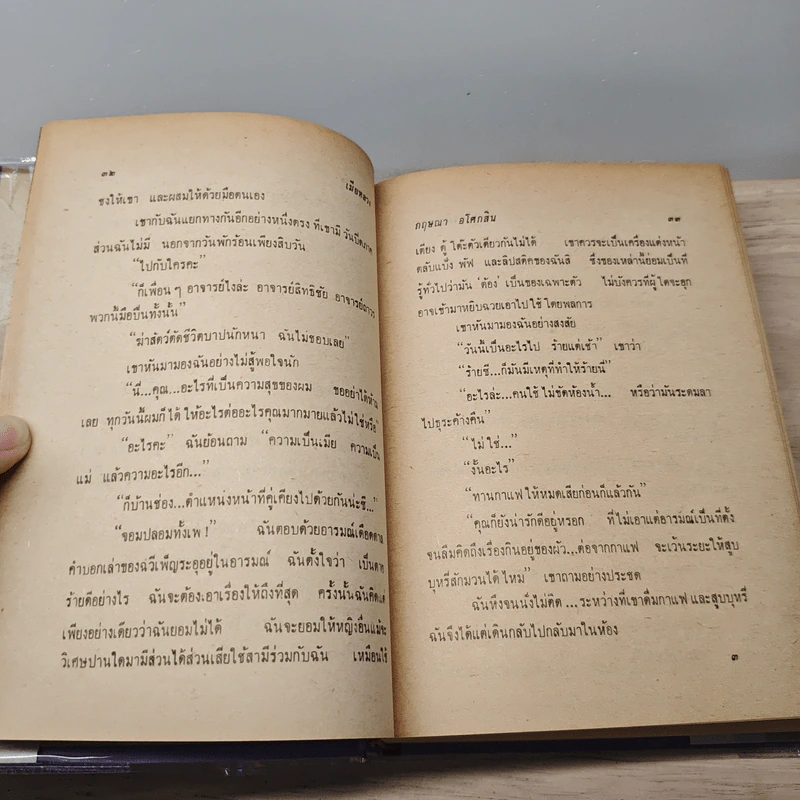 ๓๒
เมียหลวง
ชงให้เขา และผสมให้ด้วยมือตนเอง
เขากับฉันแยกทางกันอีกอย่างหนึ่งตรง ที่เขามี วันปิดภาค
ส่วนฉันไม่มี นอกจากวันพักร้อนเพียงสิบวัน
“ไปกับใครคะ”
“ก็เพื่อน ๆ อาจารย์ไงล่ะ อาจารย์สิทธิชัย อาจารย์ถาวร
พวกนี้มือปืนทั้งนั้น”
“ฆ่าสัตว์ตัดชีวิตบาปนักหนา ฉันไม่ชอบเลย”
เขาหันมามองฉันอย่างไม่สู้พอใจนัก
“นี่...คุณ...อะไรที่เป็นความสุขของผม ขออย่าได้ห้าม
เลย ทุกวันนี้ผมก็ได้ ให้อะไรต่ออะไรคุณมากมายแล้วไม่ใช่หรือ”
“อะไรคะ” ฉันย้อนถาม “ความเป็นเมีย ความเป็น
แม่ แล้วความอะไรอีก...”
“ก็บ้านช่อง...ตำแหน่งหน้าที่คู่เคียงไปด้วยกันน่ะซี...”
“จอมปลอมทั้งเพ !” ฉันตอบด้วยอารมณ์เดือดดาล
คำบอกเล่าของฉวีเพ็ญระอุอยู่ในอารมณ์ ฉันตั้งใจว่า เป็นตาย
ร้ายดีอย่างไร ฉันจะต้องเอาเรื่องให้ถึงที่สุด ครั้งนั้นฉันคิดแต่
เพียงอย่างเดียวว่าฉันยอมไม่ได้ ฉันจะยอมให้หญิงอื่นแม้จะ
วิเศษปานใดมามีส่วนได้ส่วนเสียใช้สามีร่วมกับฉัน เหมือนใช้
กฤษณา อโศกสิน
๓๓
เตียง ตู้ โต๊ะตัวเดียวกันไม่ได้ เขาควรจะเป็นเครื่องแต่งหน้า
ตลับแป้ง พัฟ และลิปสติคของฉันสิ ซึ่งของเหล่านี้ย่อมเป็นที่
รู้ทั่วไปว่ามัน ‘ต้อง’ เป็นของเฉพาะตัว ไม่บังควรที่ผู้ใดจะอุก
อาจเข้ามาหยิบฉวยเอาไปใช้ โดยพลการ
เขาหันมามองฉันอย่างสงสัย
“วันนี้เป็นอะไรไป ร้ายแต่เช้า” เขาว่า
“ร้ายซี...ก็มันมีเหตุที่ทำให้ร้ายนี่”
“อะไรล่ะ...คนใช้ ไม่ขัดห้องน้ำ... หรือว่ามันระดมลา
ไปธุระค้างคืน”
“ไม่ ใช่...”
“งั้นอะไร”
“ทานกาแฟ ให้หมดเสียก่อนก็แล้วกัน”
“คุณก็ยังน่ารักดีอยู่หรอก ที่ไม่เอาแต่อารมณ์เป็นที่ตั้ง
จนลืมคิดถึงเรื่องกินอยู่ของผัว...ต่อจากกาแฟ จะเว้นระยะให้สูบ
บุหรี่สักมวนได้ ไหม” เขาถามอย่างประชด
ฉันหึงจนนั่งไม่ติด ...ระหว่างที่เขาดื่มกาแฟ และสูบบุหรี่
ฉันจึงได้แต่เดินกลับไปกลับมาในห้อง
๓